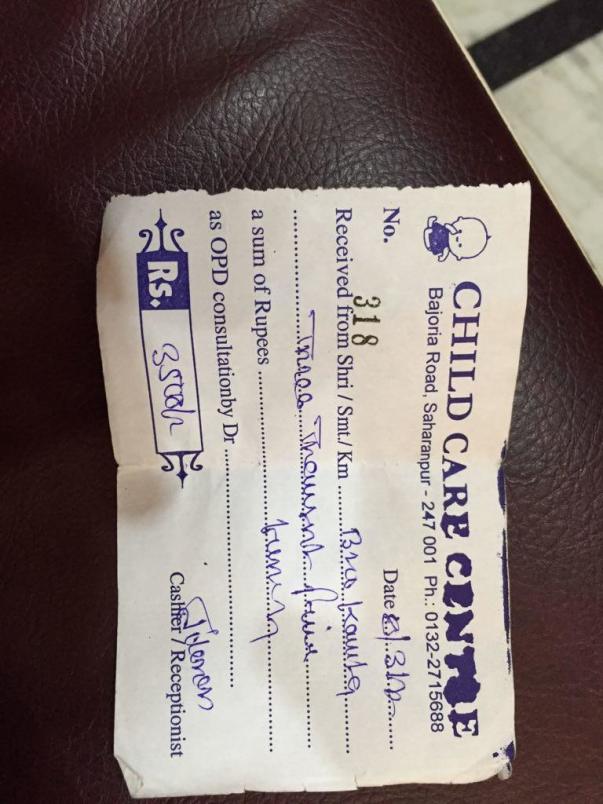 CHILD CARE CENTRE
Bajoria Road, Saharanpur - 247 001 Ph.: 0132-2715688
No. 318 Date
Received from Shri / Smt./ Km
Three Thousand five
a sum of Rupees
as OPD consultationby Dr
Rs. 3500/-
Cashier / Receptionist